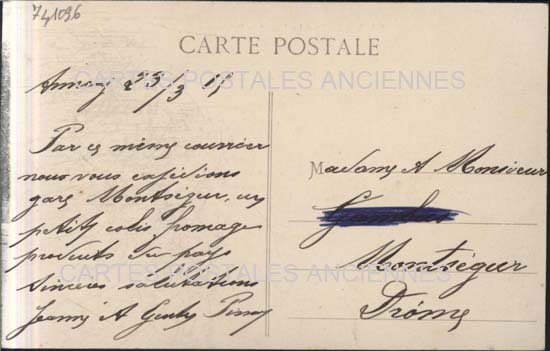 741096
CARTE POSTALE
CARTES POSTALES ANCIENNES
Annecy 23/3
Par ce même courrier
nous vous expédions
gare Montségur, un
petit colis fromage
produits du pay
Sincères salutations
Jeanne A
Madame & Monsieur
Montségur
Drôme
CARTES POSTALES ANCIENNES